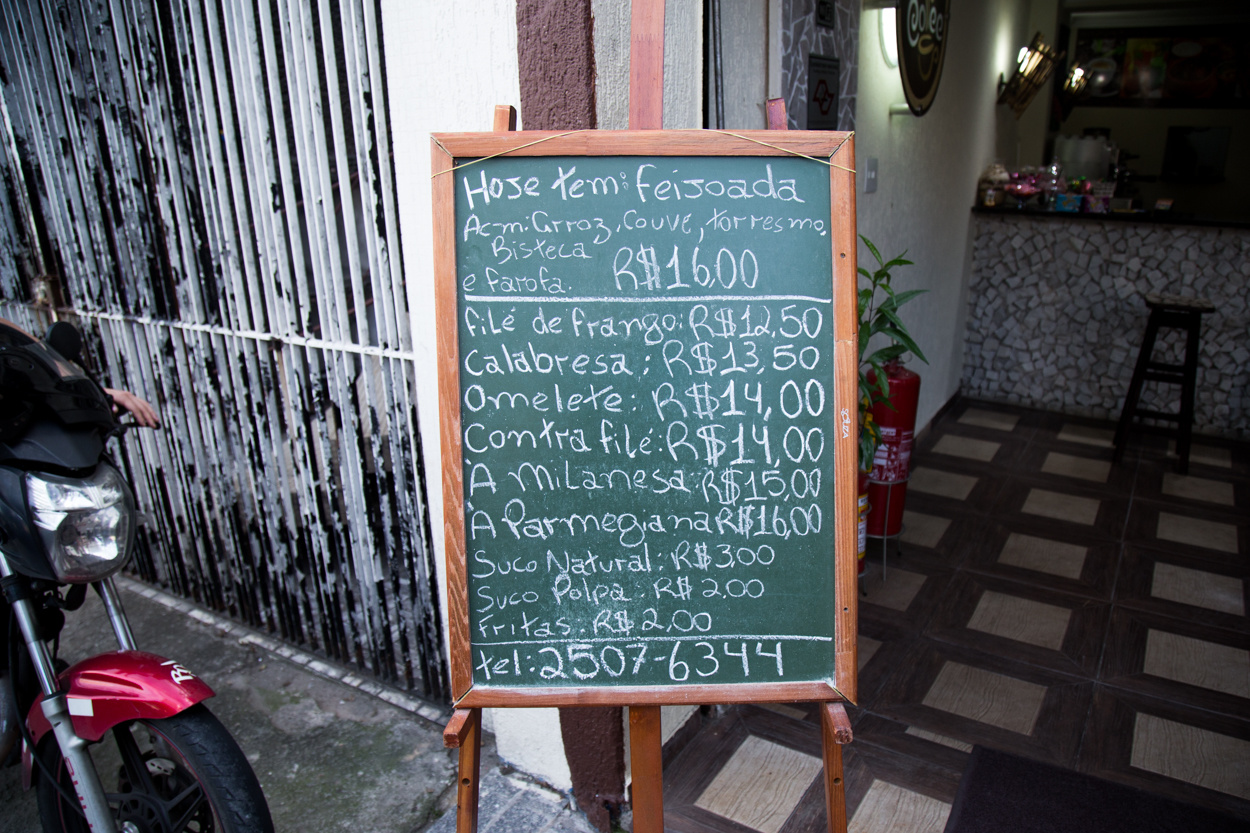 Café
Hoje tem: Feijoada
Ac-m: Arroz, Couve, torresmo,
Bisteca
e farofa. R$16,00
filé de frango: R$12,50
Calabresa: R$13,50
Omelete: R$14,00
Contra filé: R$14,00
À Milanesa: R$15,00
À Parmegiana R$16,00
Suco Natural: R$3,00
Suco Polpa: R$ 2,00
Fritas: R$2,00
tel: 2507-6344